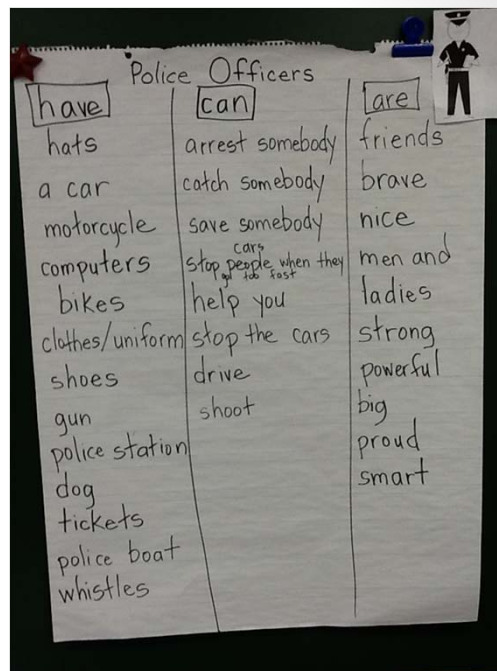 Police Officers
have
hats
a car
motorcycle
computers
bikes
clothes/uniform
shoes
gun
police station
dog
tickets
police boat
whistles
can
arrest somebody
catch somebody
save somebody
cars
stop people when they
go too fast
help you
stop the cars
drive
shoot
are
friends
brave
nice
men and
ladies
strong
powerful
big
proud
smart